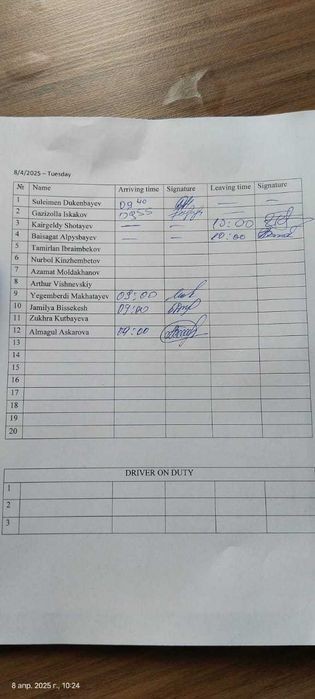 8/4/2025 – Tuesday
№ Name Arriving time Signature Leaving time Signature
1 Suleimen Dukenbayev 09 40 — —
2 Gazizolla Iskakov 0955 — —
3 Kairgeldy Shotayev — — 10:00
4 Baisagat Alpysbayev — — 10:00
5 Tamirlan Ibraimbekov
6 Nurbol Kinzhembetov
7 Azamat Moldakhanov
8 Arthur Vishnevskiy
9 Yegemberdi Makhatayev 09:00
10 Jamilya Bissekesh 09:00
11 Zukhra Kutbayeva
12 Almagul Askarova 09:00
13
14
15
16
17
18
19
20
DRIVER ON DUTY
1
2
3
8 апр. 2025 г., 10:24